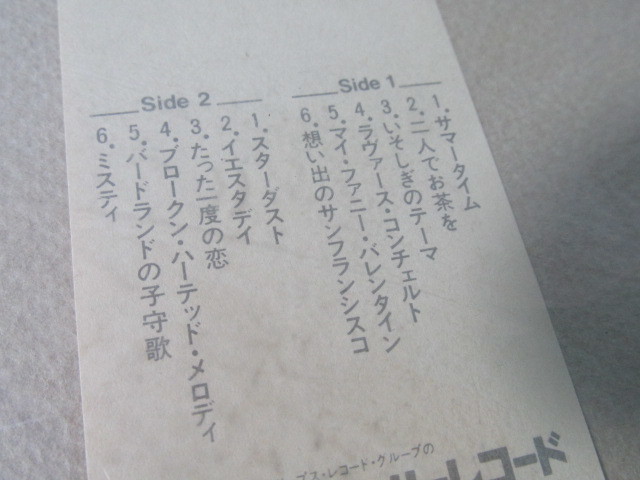 Side 1
1. サマータイム
2. 二人でお茶を
3. いそしぎのテーマ
4. ラヴァース・コンチェルト
5. マイ・ファニー・バレンタイン
6. 想い出のサンフランシスコ
Side 2
1. スターダスト
2. イエスタデイ
3. たった一度の恋
4. ブロークン・ハーテッド・メロディ
5. バードランドの子守歌
6. ミスティ
プス・レコード・グループの
ーレコード